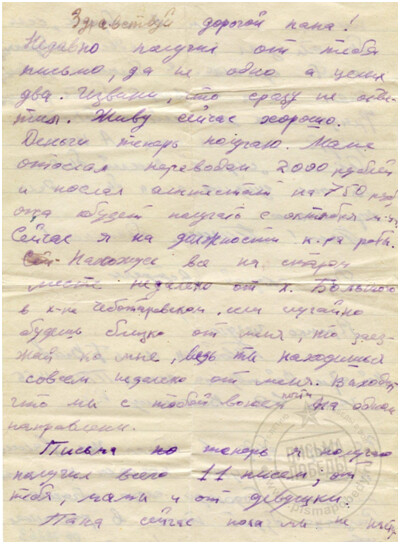 Здравствуй дорогой папа!
Недавно получил от тебя
письмо, да не одно а целых
два. Извини, что сразу не отве-
тил. Живу сейчас хорошо.
Деньги теперь получаю. Маме
отослал переводом 2000 рублей
и послал аттестат на 750 руб
она будет получать с октября м-ца
Сейчас я на должности к-ра роты.
Нахожусь все на старом
месте недалеко от х. Большого
в х-не Чеботаревском, если случайно
будешь близко от меня, то заез-
жай ко мне, ведь ты находишься
совсем недалеко от меня. Выходит
что мы с тобой воюем почти на одном
направлении.
Письма но теперь я получаю
получил всего 11 писем, от
тебя, мамы и от девушки.
Папа сейчас пока мы не
ПИСЬМА
ПОБЕДЫ